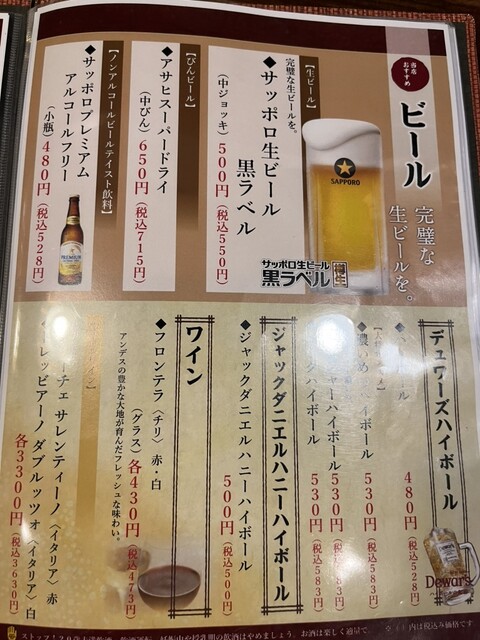 当店
おすすめ
ビール
完璧な
生ビールを。
SAPPORO
【生ビール】
完璧な生ビールを。
◆サッポロ生ビール
黒ラベル
(中ジョッキ) 500円 (税込550円)
サッポロ生ビール
黒ラベル
樽生
【びんビール】
◆アサヒスーパードライ
(中びん) 650円 (税込715円)
【ノンアルコールビールテイスト飲料】
◆サッポロプレミアム
アルコールフリー
(小瓶) 480円 (税込528円)
PREMIUM
デュワーズハイボール
480円 (税込528円)
ハイボール
530円 (税込583円)
ハイボール
530円 (税込583円)
ハイボール
530円 (税込583円)
Dewar's
ジャックダニエルハニーハイボール
◆ジャックダニエルハニーハイボール
500円 (税込500円)
ワイン
◆フロンテラ〈チリ〉赤・白
(グラス) 各430円 (税込473円)
アンデスの豊かな大地が育んだフレッシュな味わい。
ーチェ サレンティーノ〈イタリア〉赤
レッビアーノ ダブルッツォ〈イタリア〉白
各3300円 (税込3630円)
ストップ！20歳未満飲酒
妊娠中や授乳期の飲酒はやめましょう。お酒は楽しく適量で
内は税込み価格です